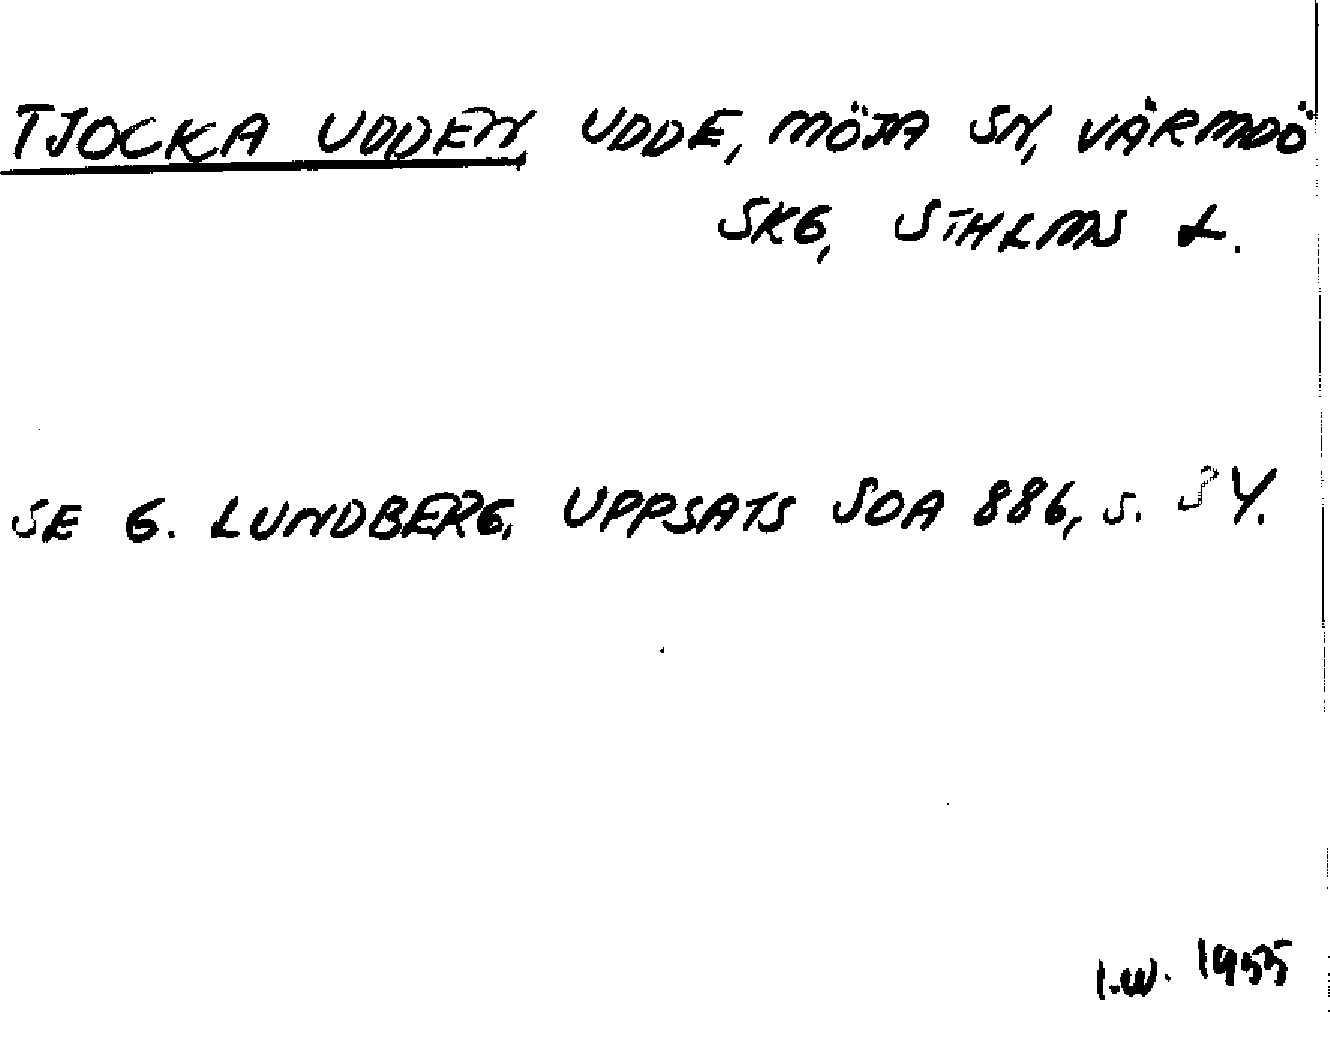 TJOCKA UDDEN, UDDE, MÖJA SN, VÄRMDÖ
SKG, STHLMS L.
SE G. LUNDBERG, UPPSATS SOA 886, S.
I.W. 1955